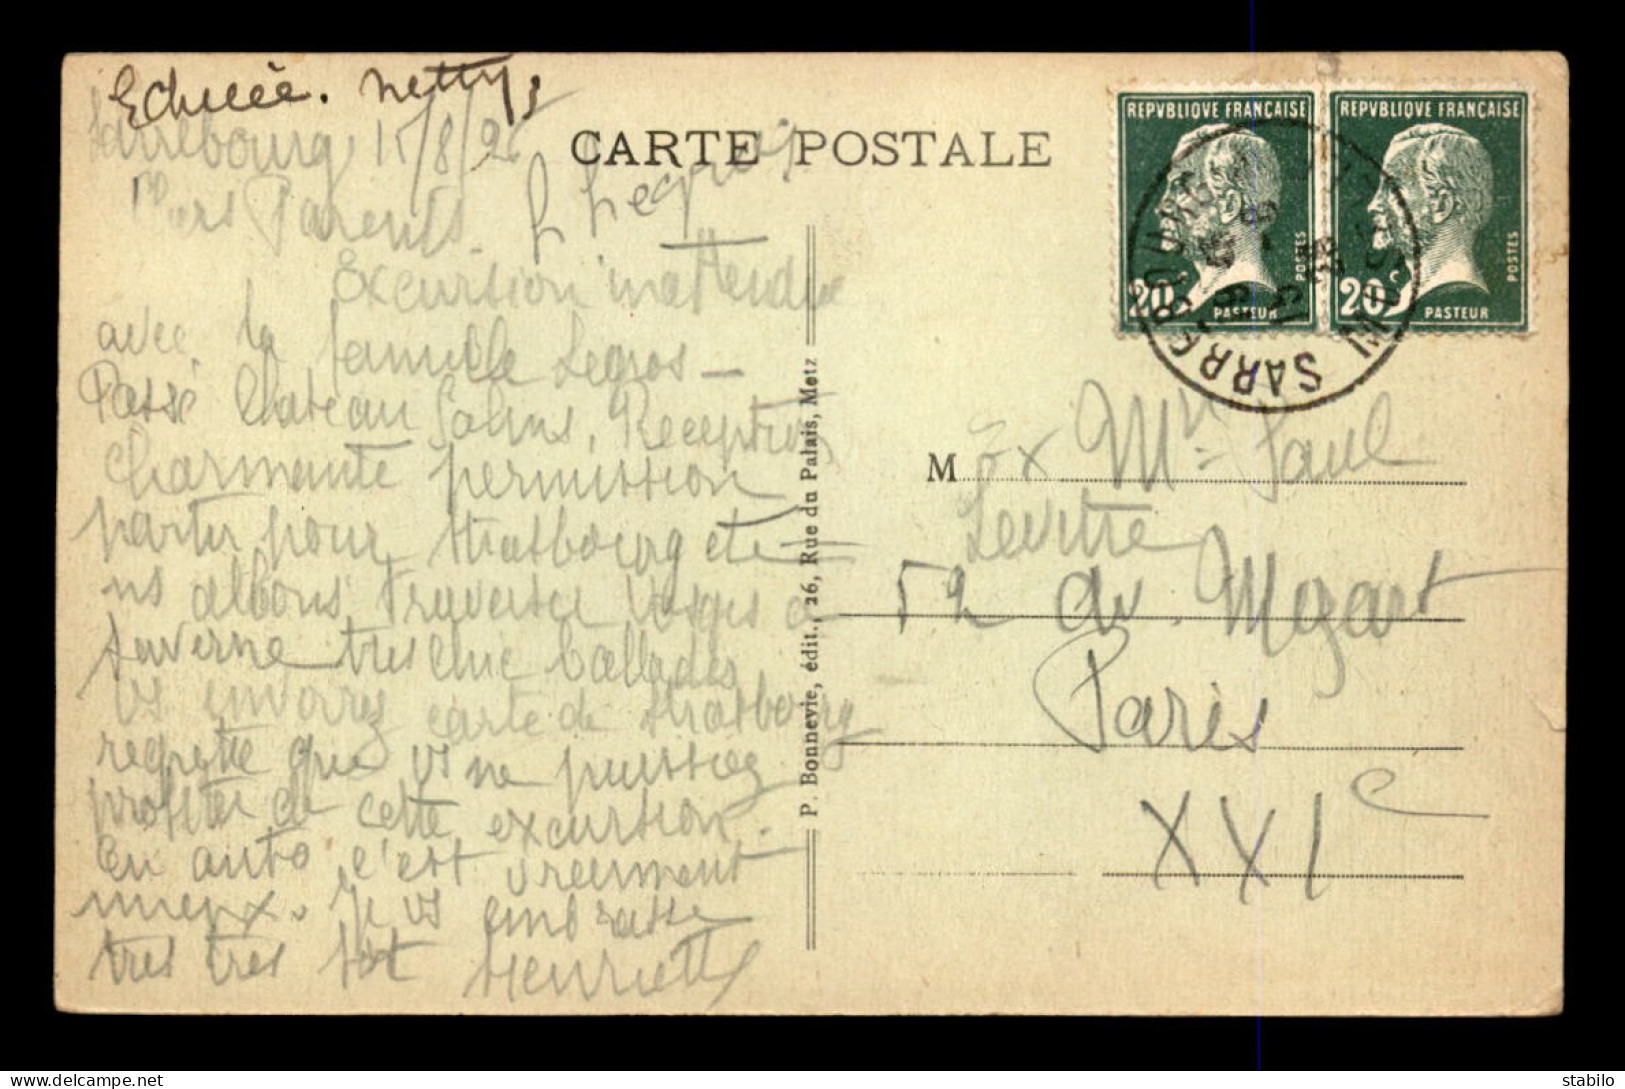 CARTE POSTALE
Sarrebourg 15/8/26
Chers Parents.
Excursion inattendue
avec la famille Legros —
Passé Chateau Salins. Reception
charmante permission
partir pour Strasbourg et
ns allons traverser Vosges a
Saverne tres chic ballade
vs enverrez carte de Strasbourg
regrette que vs ne puissiez
profiter de cette excursion.
En auto c'est vraiment
mieux. Je vs embrasse
tres tres fort Henriette
P. Bonnevie, édit., 26, Rue du Palais, Metz
REPVBLIQVE FRANÇAISE
POSTES
20c
PASTEUR
REPVBLIQVE FRANÇAISE
POSTES
20c
PASTEUR
SARREBOURG
MOSELLE
M Mr Paul
Levitre
52 av. Mozart
Paris
XXIe
stabilo